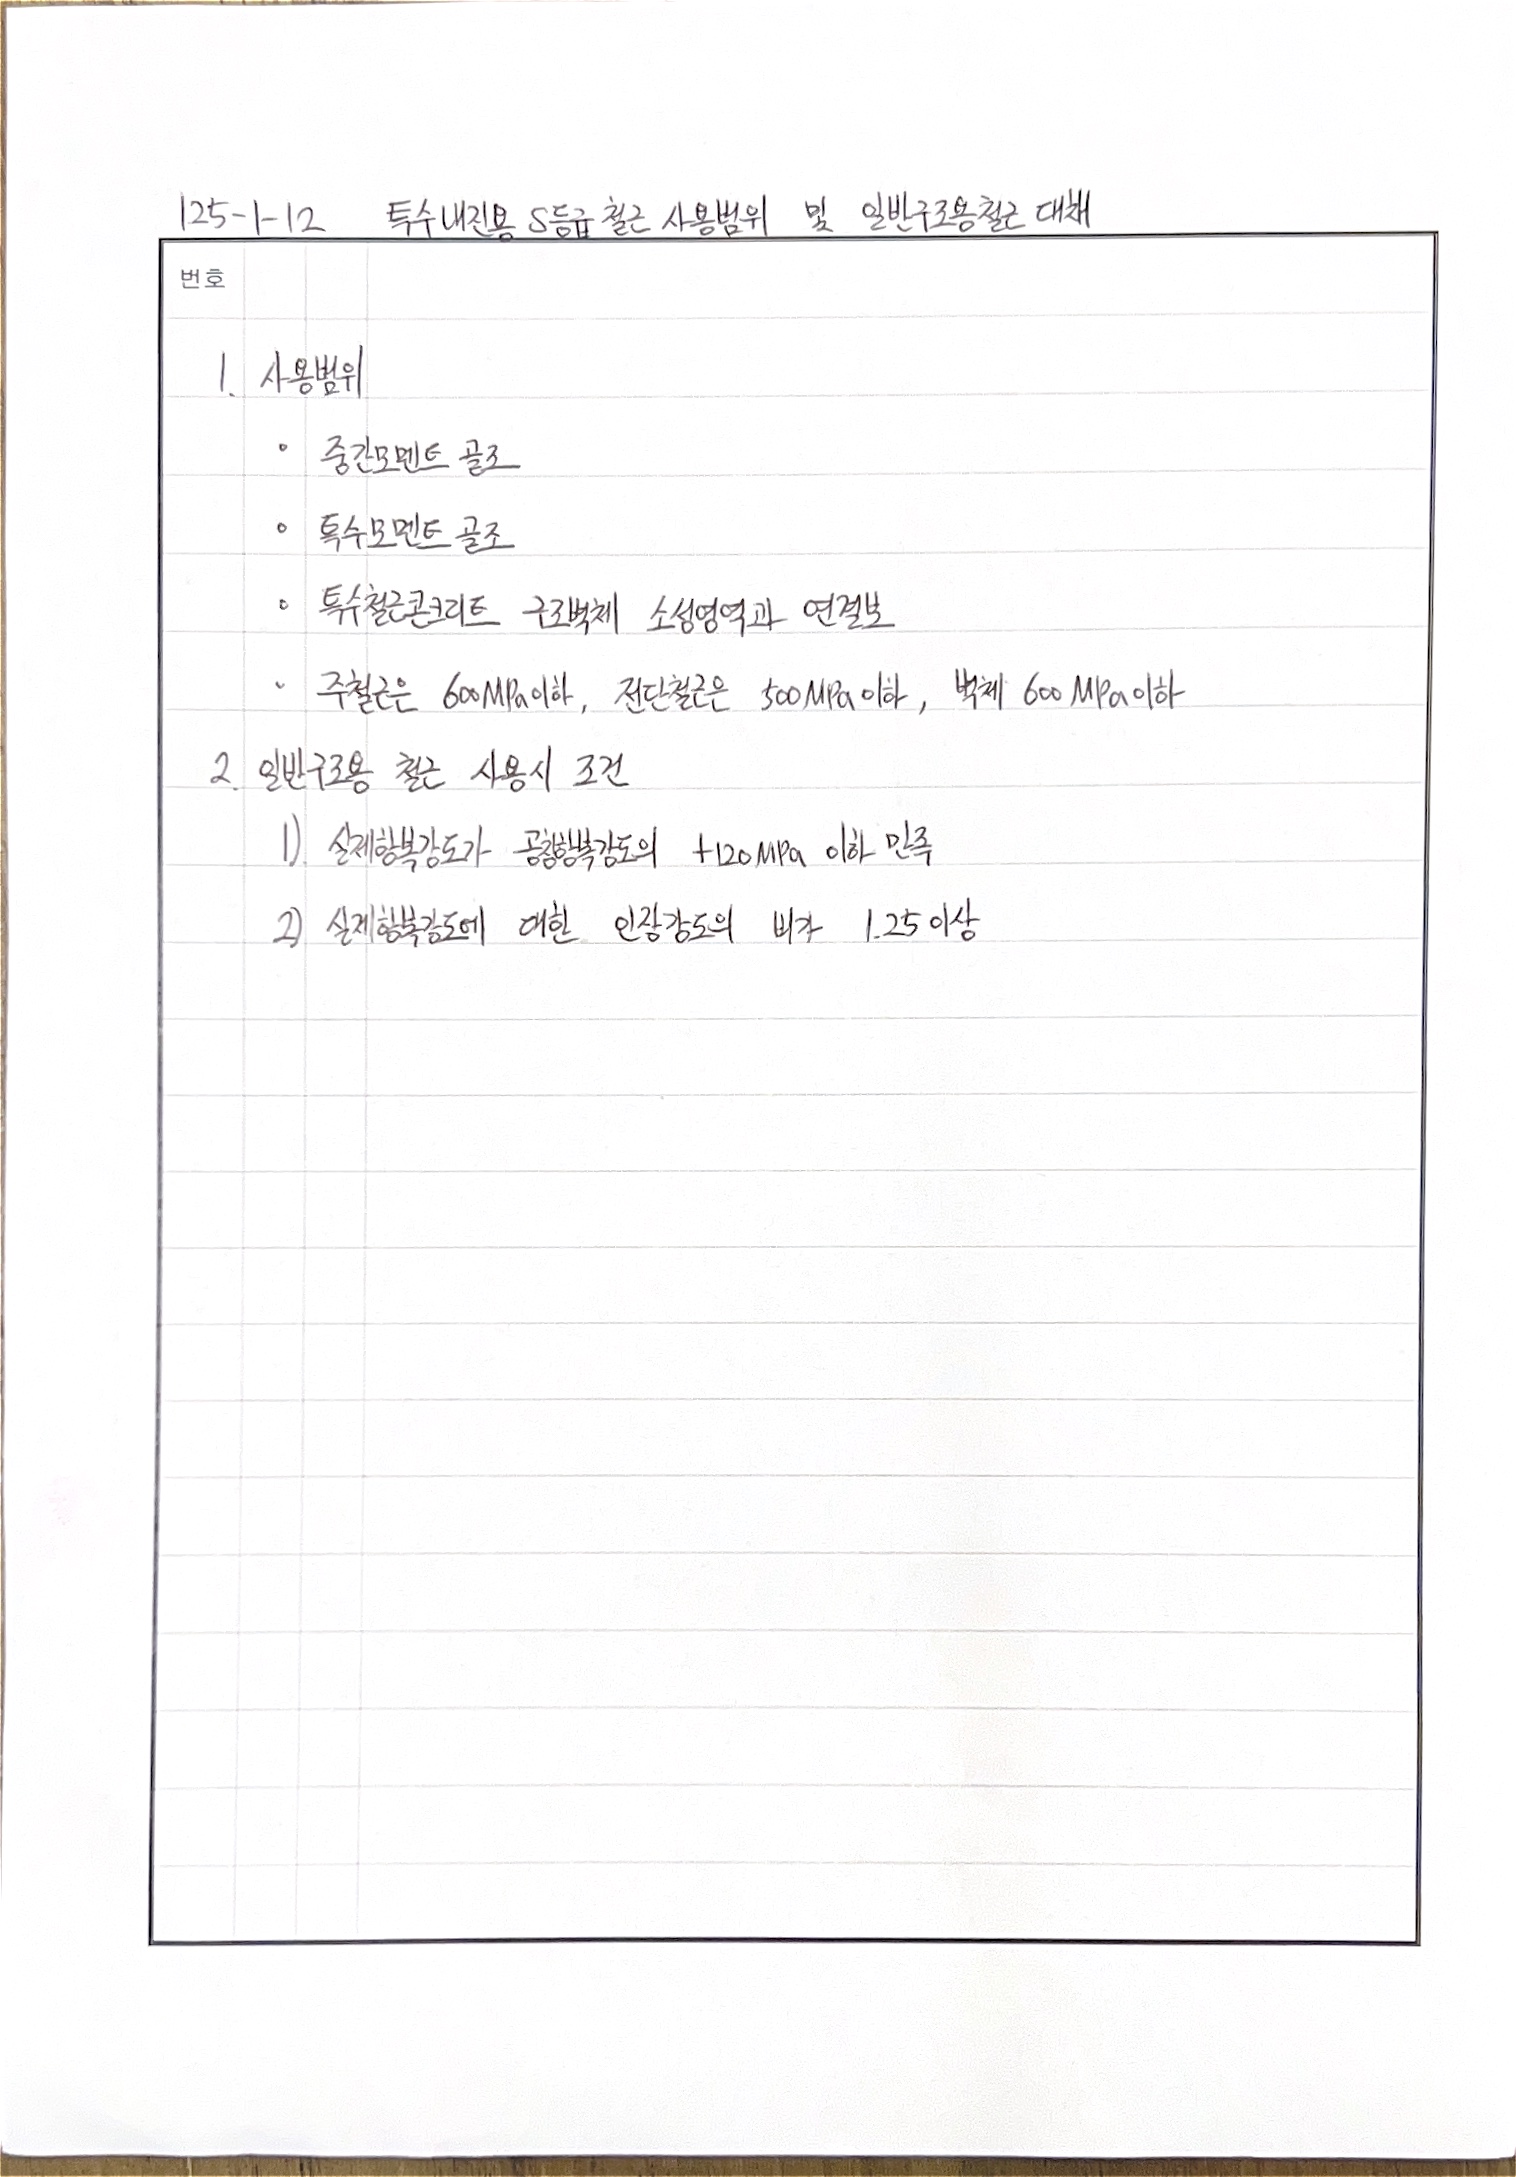 125-1-12 특수내진용 S등급 철근 사용범위 및 일반구조용철근 대체
번호
1. 사용범위
◦ 중간모멘트 골조
◦ 특수모멘트 골조
◦ 특수철근콘크리트 구조벽체 소성영역과 연결보
◦ 주철근은 600MPa이하, 전단철근은 500MPa이하, 벽체 600MPa이하
2. 일반구조용 철근 사용시 조건
1) 실제항복강도가 공칭항복강도의 +120MPa 이하 만족
2) 실제항복강도에 대한 인장강도의 비가 1.25이상